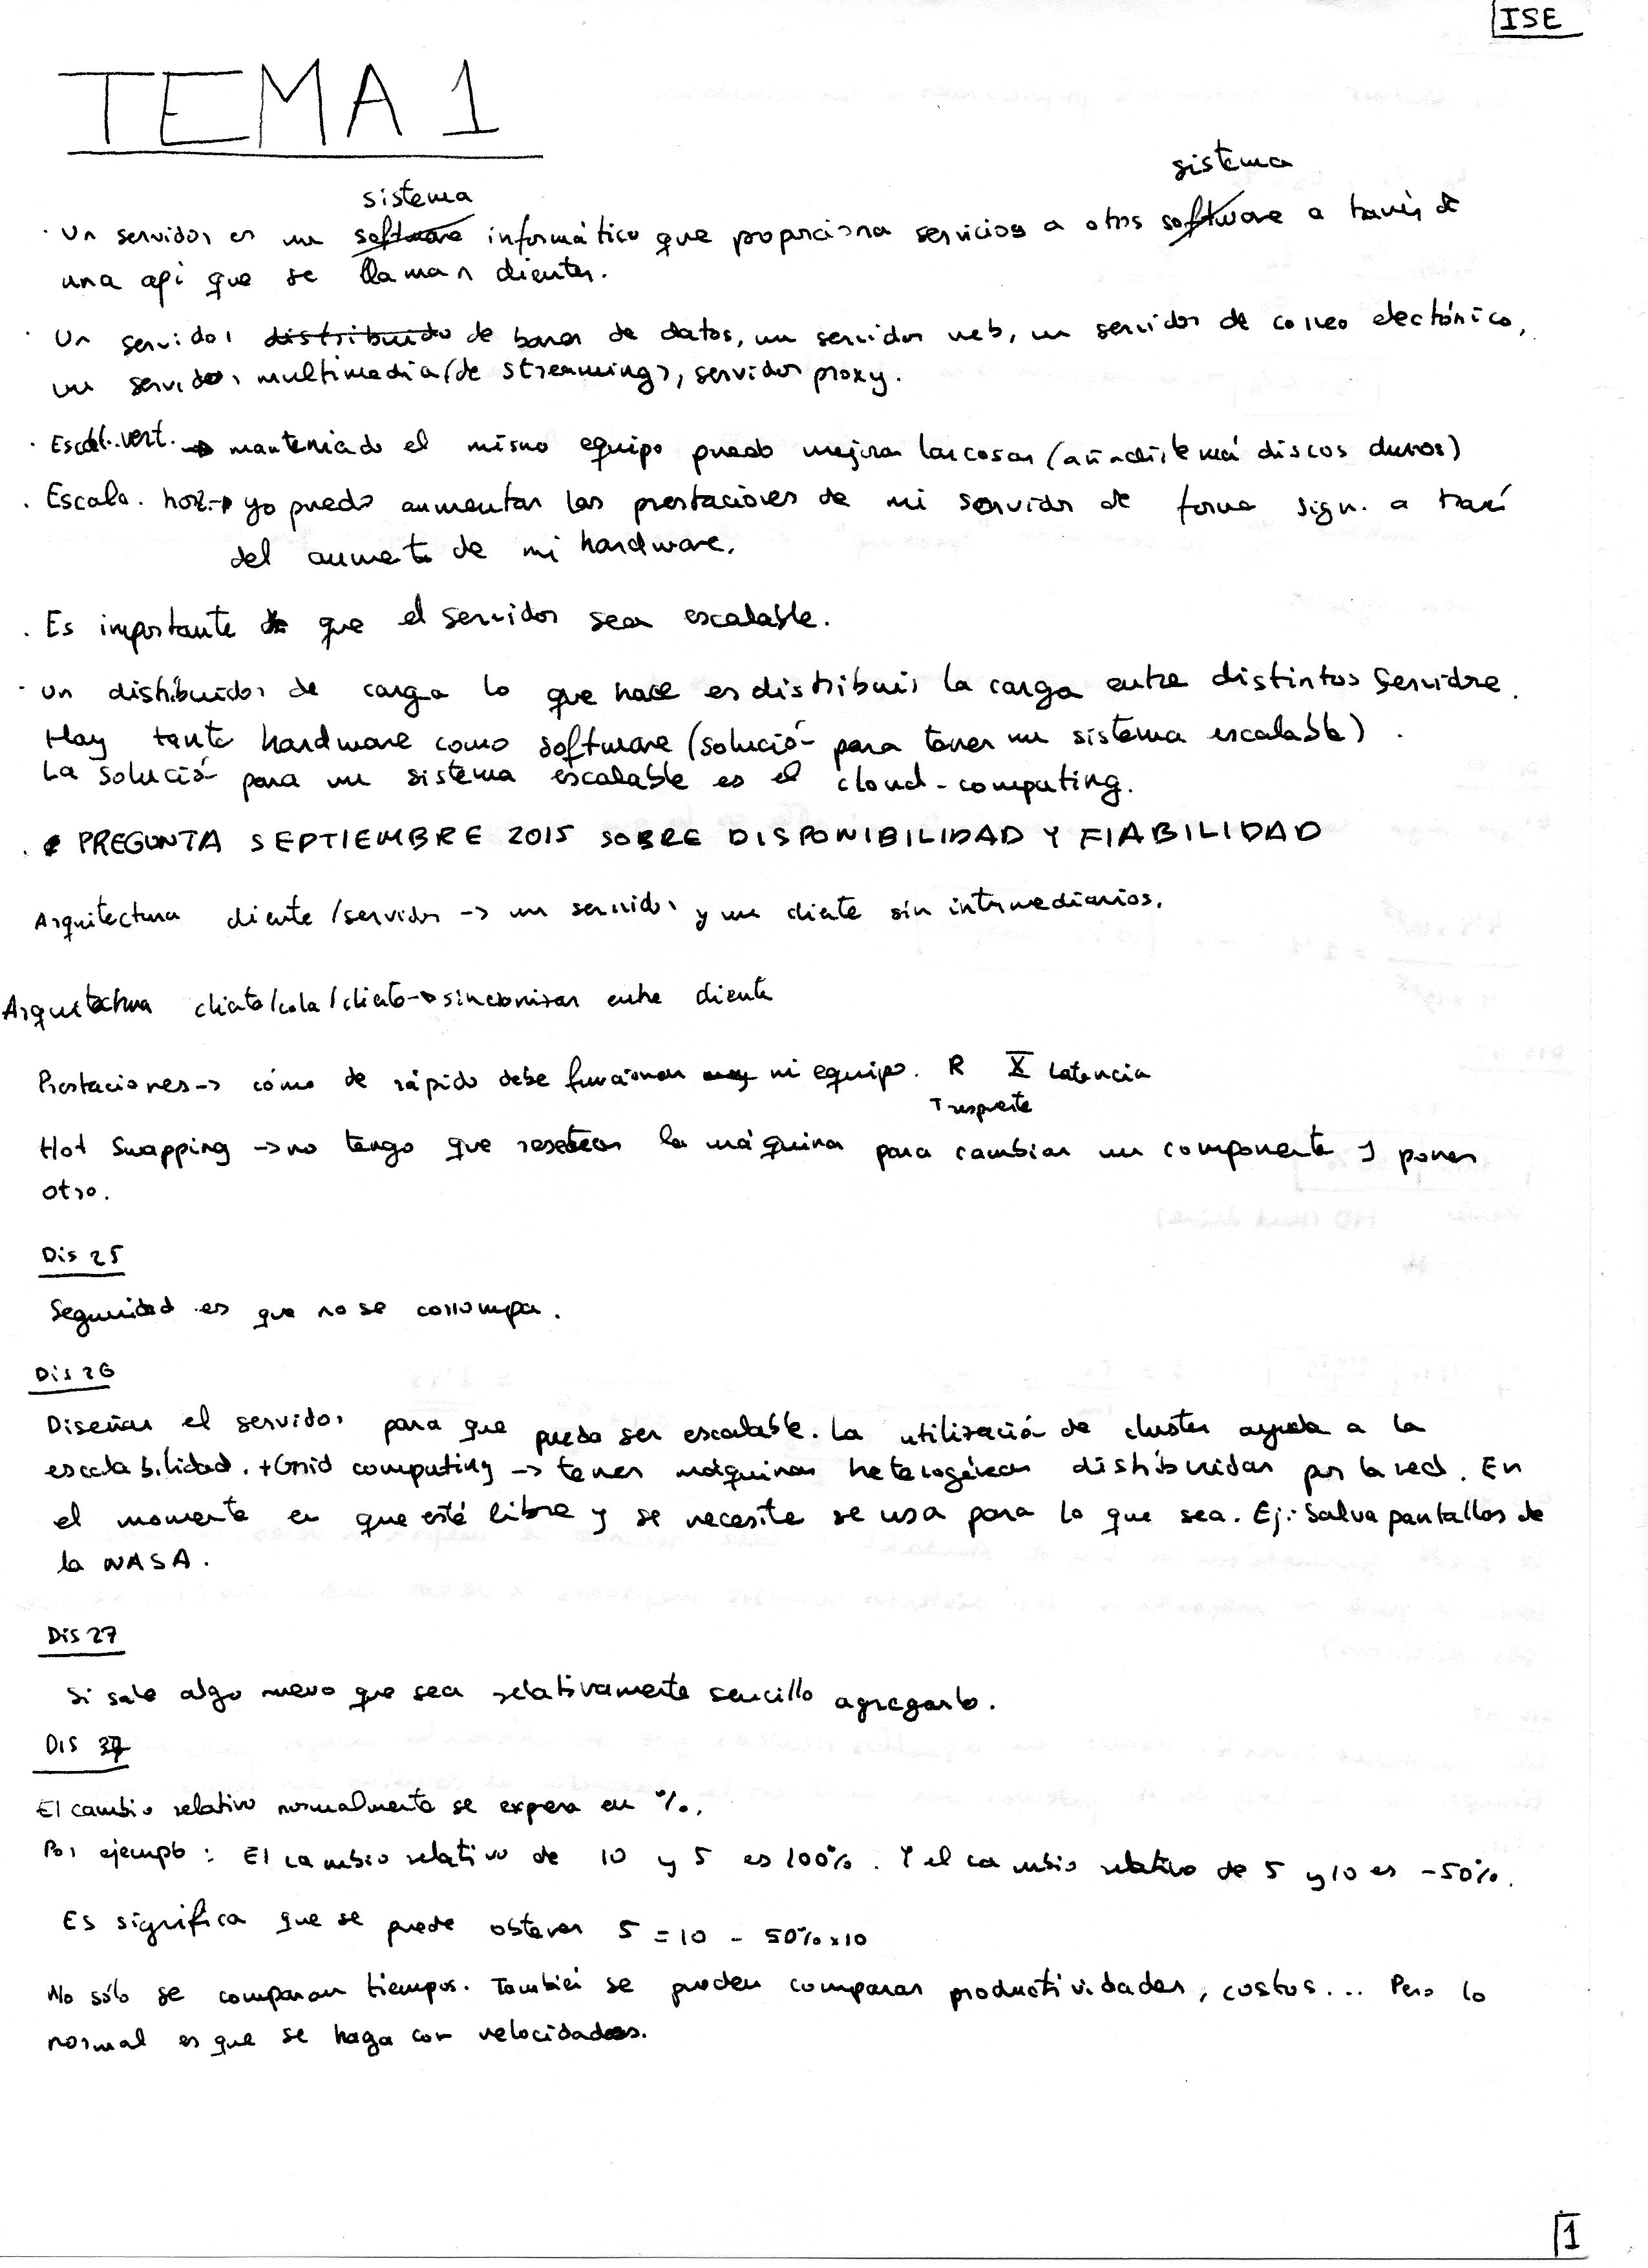 ISE
TEMA 1
sistema sistema
· Un servidor es un software informático que proporciona servicios a otros software a través de
una api que se llaman clientes.
· Un servidor distribuido de bases de datos, un servidor web, un servidor de correo electrónico,
un servidor multimedia (de streamming), servidor proxy.
· Escal. vert. → manteniado el mismo equipo puedo mejorar las cosas (añadirle má discos duros)
· Escala. hoz. → yo puedo aumentar las prestaciones de mi servidor de forma sign. a travé
del aumento de mi hardware.
· Es importante que el servidor sea escalable.
· Un distribuidor de carga lo que hace es distribuir la carga entre distintos servidore.
Hay tanto hardware como software (solución para tener un sistema escalable).
La solución para un sistema escalable es el cloud-computing.
· PREGUNTA SEPTIEMBRE 2015 SOBRE DISPONIBILIDAD Y FIABILIDAD
Arquitectura cliente/servidor -> un servidor y un cliente sin intermediarios.
Arquitectura cliente/cola/cliente → sincronizar entre cliente
Prestaciones -> cómo de rápido debe funcionar mi equipo. R X̅ latencia
T respuesta
Hot Swapping -> no tengo que resetear la máquina para cambiar un componente y poner
otro.
Dis 25
Seguridad es que no se corrompa.
Dis 26
Diseñar el servidor para que pueda ser escalable. La utilización de cluster ayuda a la
escalabilidad. + Grid computing -> tener máquinas heterogéneas distribuidas por la red. En
el momento en que esté libre y se necesite se usa para lo que sea. Ej: Salva pantallas de
la NASA.
Dis 27
Si sale algo nuevo que sea relativamente sencillo agregarlo.
Dis 37
El cambio relativo normalmente se expresa en %.
Por ejemplo: El cambio relativo de 10 y 5 es 100%. Y el cambio relativo de 5 y 10 es -50%.
Es significa que se puede obtener 5 = 10 - 50% x 10
No sólo se comparan tiempos. También se pueden comparar productividades, costos... Pero lo
normal es que se haga con velocidades.
1